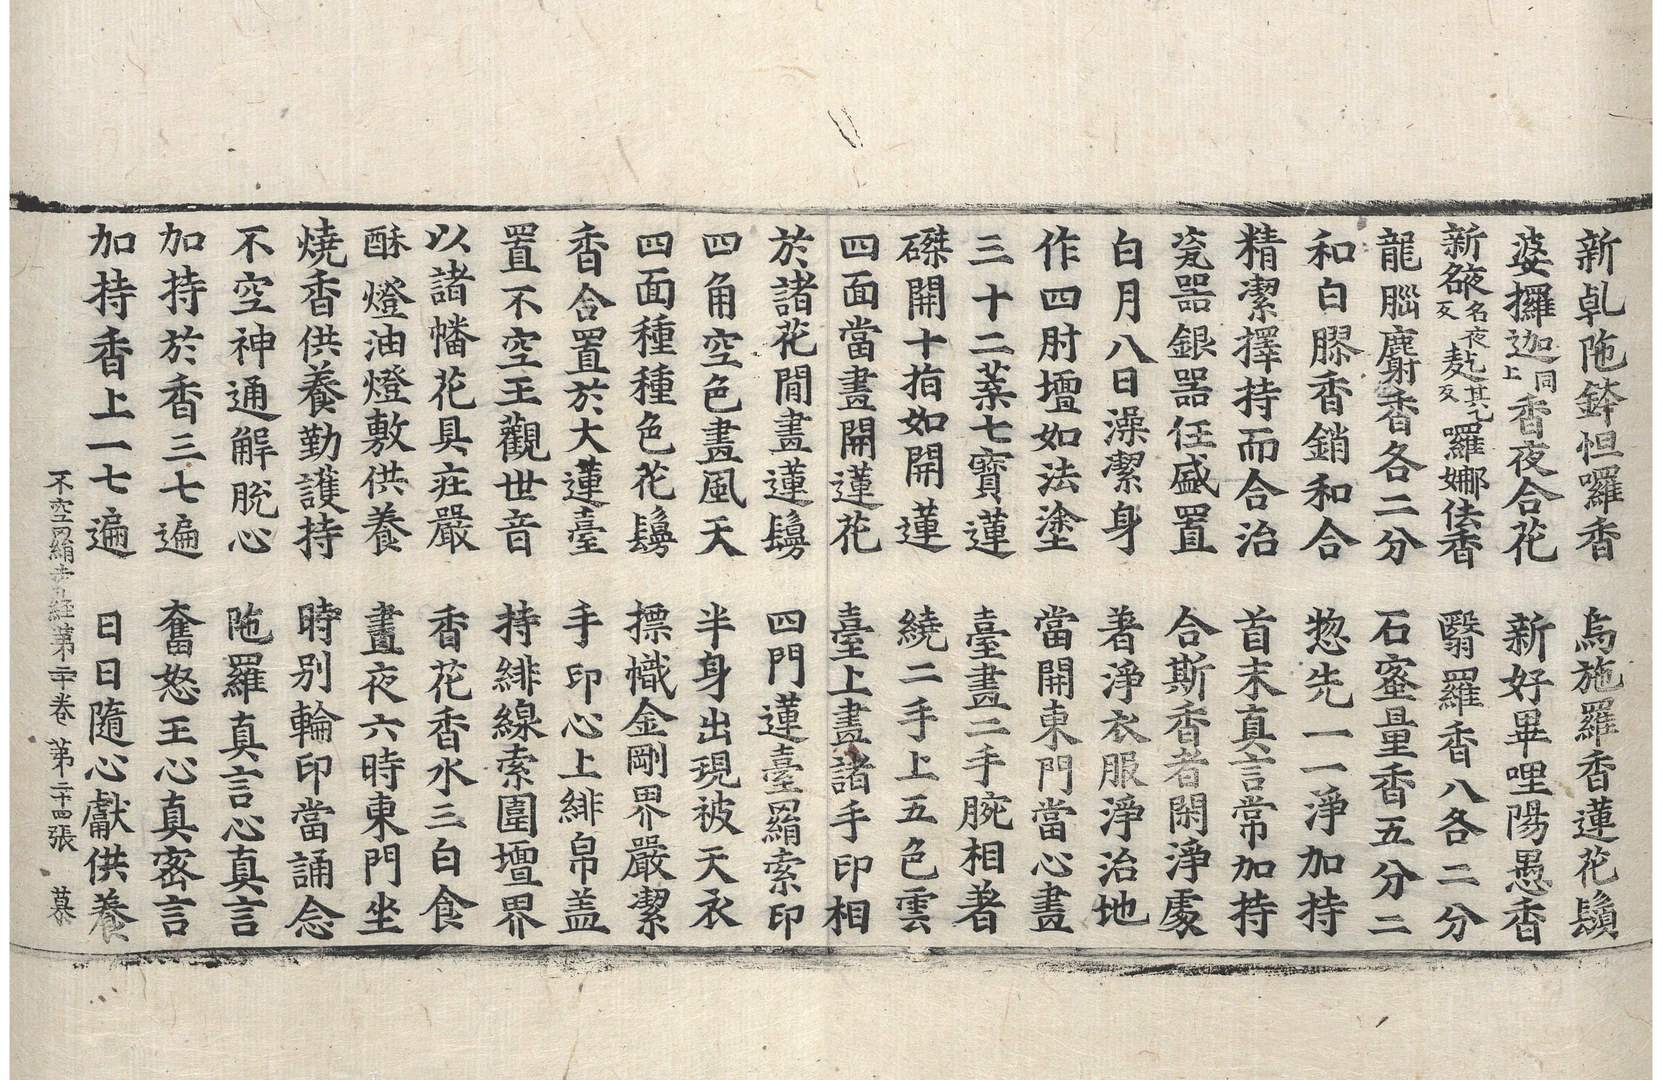 新乹陁鉢怛囉香　烏施羅香蓮花鬚
婆攞迦同上香夜合花　新好畢哩陽愚香
新名夜反其乙反囉娜佉香　翳羅香八各二分
龍腦麝香各二分　石蜜量香五分二
和白膠香銷和合　惣先一一淨加持
精潔擇持而合治　首末真言常加持
瓷器銀器任盛置　合斯香者閑淨處
白月八日澡潔身　著淨衣服淨治地
作四肘壇如法塗　當開東門當心畫
三十二葉七寶蓮　臺畫二手腕相著
磔開十指如開蓮　繞二手上五色雲
四面當畫開蓮花　臺上畫諸手印相
於諸花間畫蓮鬘　四門蓮臺羂索印
四角空色畫風天　半身出現被天衣
四面種種色花鬘　摽幟金剛界嚴潔
香合置於大蓮臺　手印心上緋帛盖
置不空王觀世音　持緋線索圍壇界
以諸幡花具莊嚴　香花香水三白食
酥燈油燈敷供養　晝夜六時東門坐
燒香供養勤護持　時別輪印當誦念
不空神通解脫心　陁羅真言心真言
加持於香三七遍　奮怒王心真密言
加持香上一七遍　日日隨心獻供養
不空羂索経第二十卷　第二十四張　慕